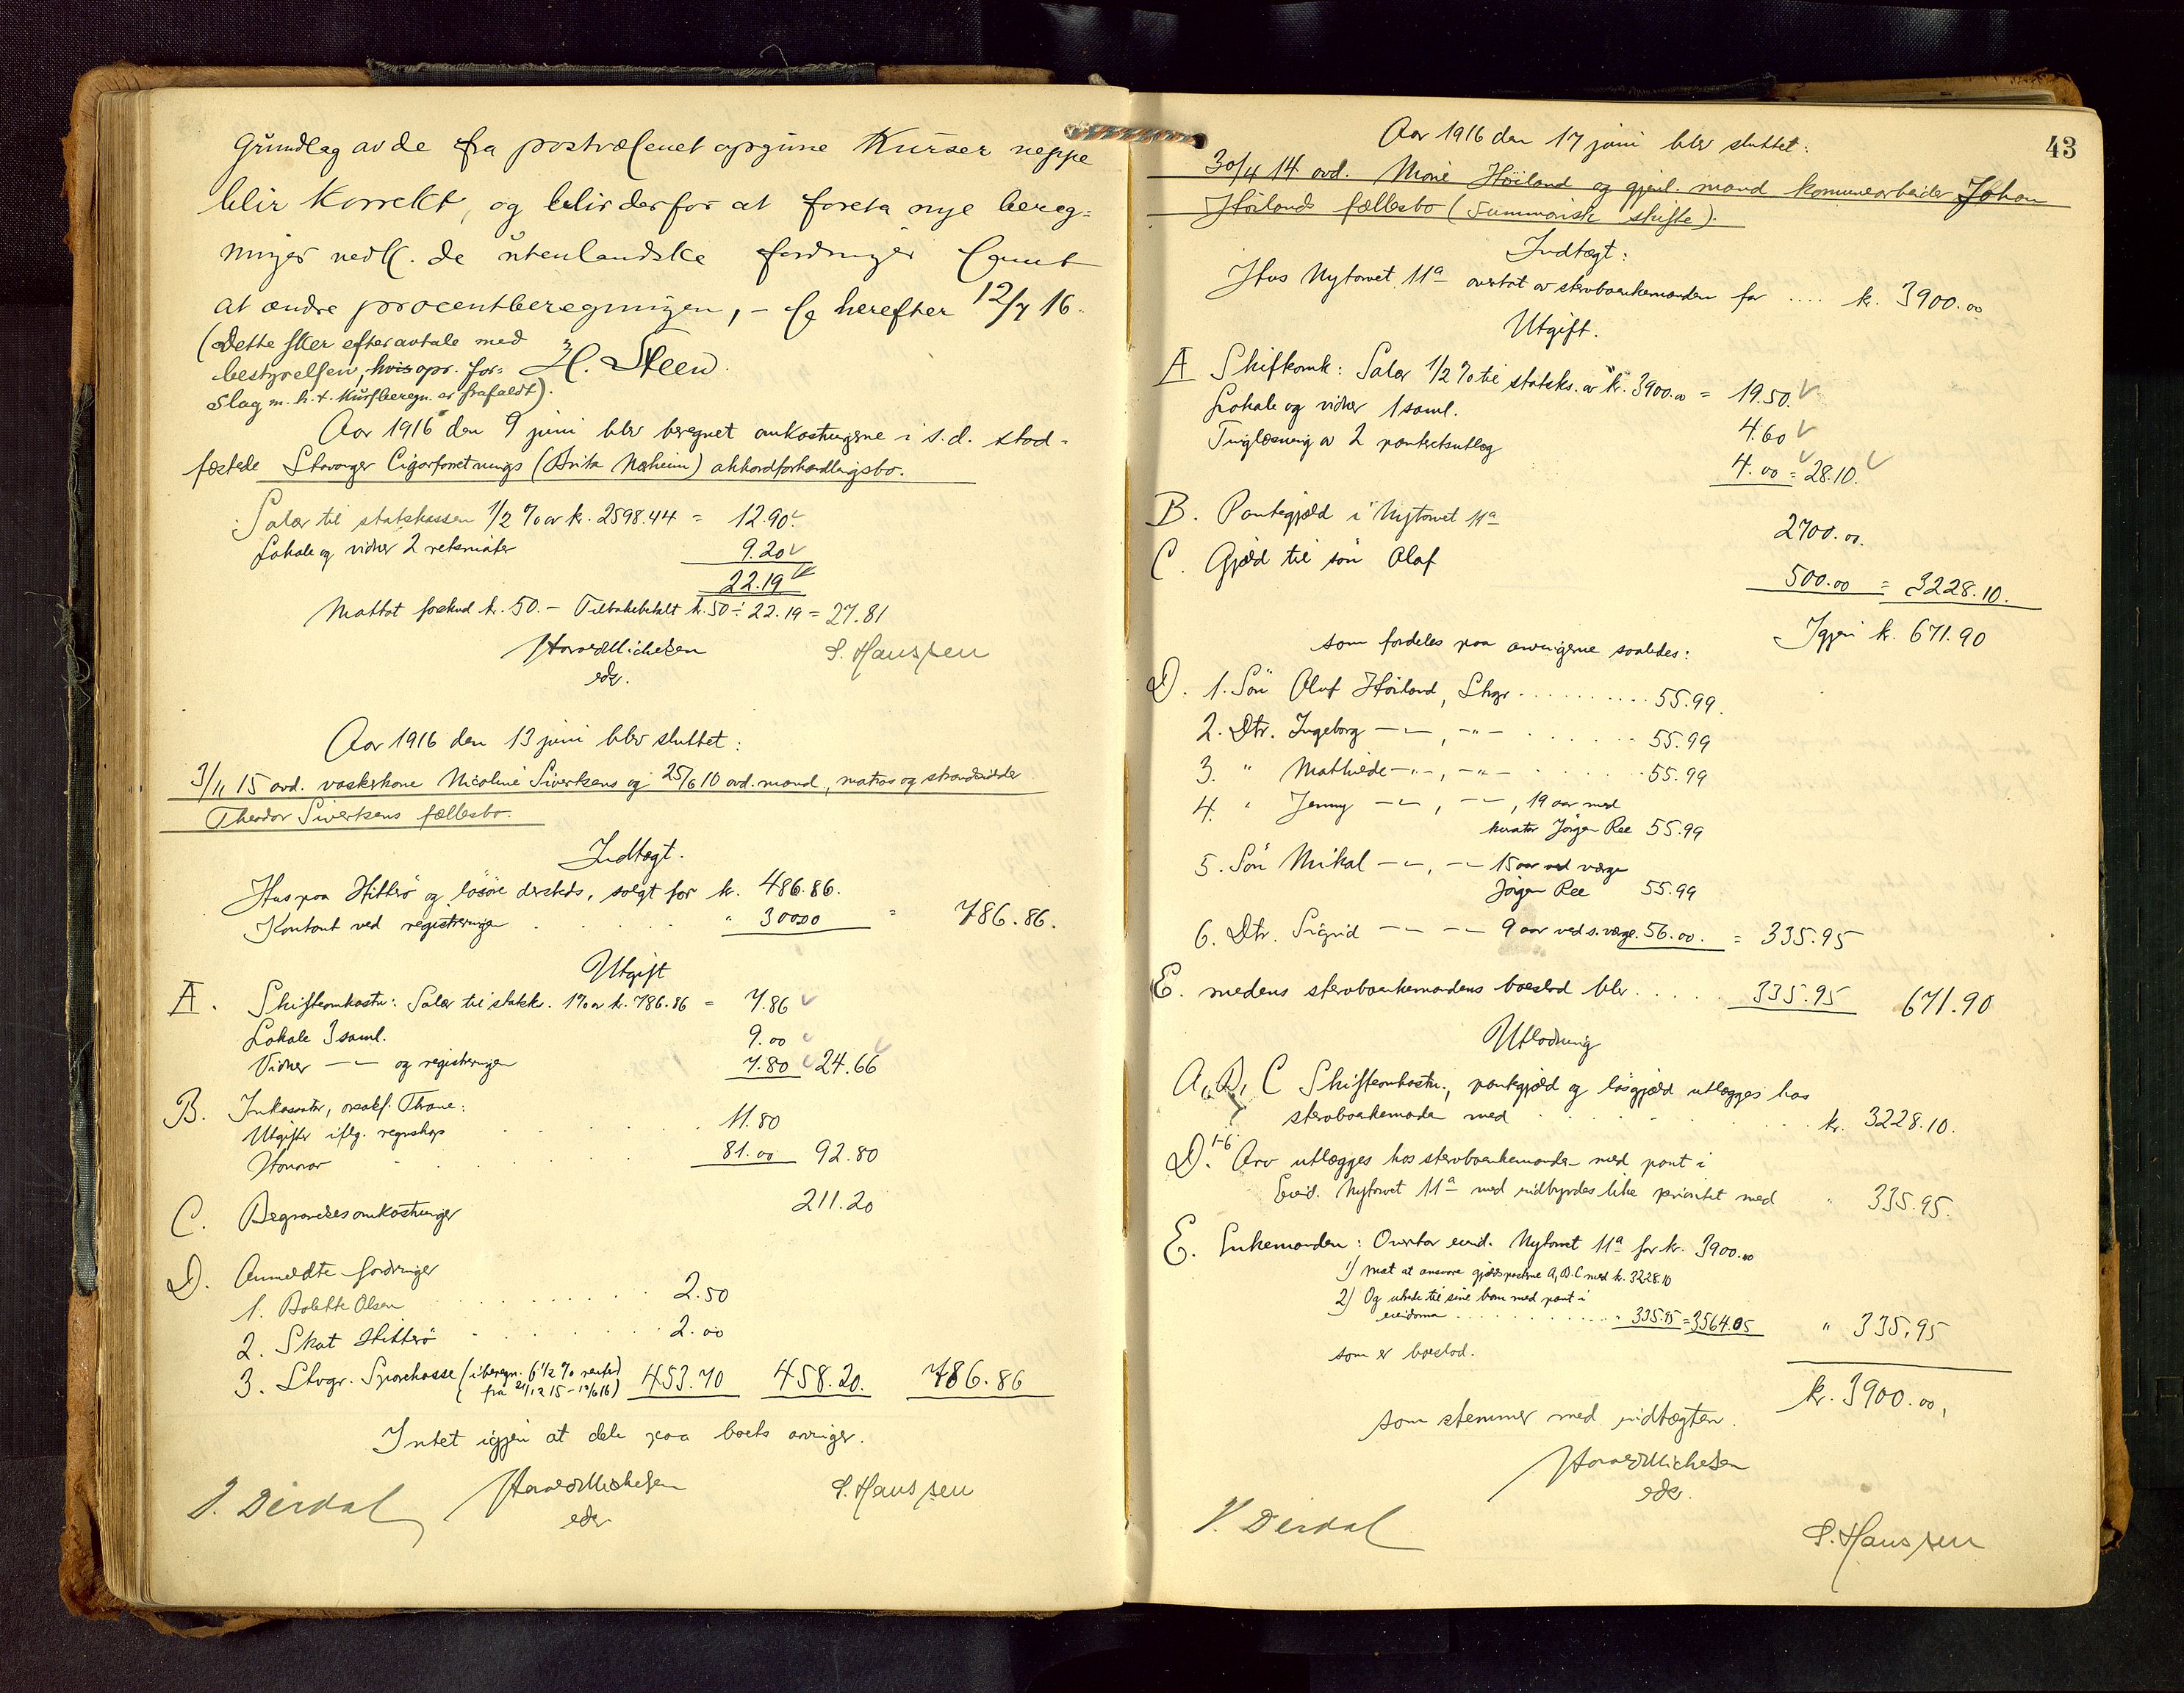 Grundlag av de fra postvæsenet opgivne Kurser neppe
blir Korrekt, og blir derfor at foreta nye bereg=
ninger vedk. de utenlandske fordringer samt
at ændre procentberegningen, – Se herefter 12/7 16.
(Dette sker efter avtale med
bestyrelsen, hvis opr. for= H. Steen.
slag m. h. t. Kursberegn. er frafaldt).
Aar 1916 den 9 juni blev beregnet omkostningene i s.d. stad=
fæstede Stavanger Cigarforretnings (Brita Næsheim) akkordforhandlingsbo.
Salær til statskassen 1/2 % av kr. 2598.44 = 12.90
Lokale og vidner 2 retsmøter 9.20
22.19
Mottat forskud kr. 50. – Tilbakebetalt kr. 50 ÷ 22.19 = 27.81
Harald Michelsen S. Hanssen
edv.
Aar 1916 den 13 juni blev sluttet:
3/11 15 avd. vaskekone Nicoline Sivertsens og 25/6 10 avd. mand, matros og strandsidder
Theodor Sivertsens fællesbo.
Indtægt.
Hus paa Hitterø og løsøre dersteds, solgt for kr. 486.86.
Kontant ved registreringen . . . . " 300.00 = 786.86.
Utgift
A. Skifteomkostn: Salær til statsk. 1% av kr. 786.86 = 7.86
Lokale 3 saml. 9.00
Vidner –"– og registreringen 7.80 24.66
B. Inkassator, oversakf. Thrane:
Utgifter iflg. regnskap . . . . 11.80
Honorar . . . . 81.00 92.80
C. Begravelsesomkostninger 211.20
D. Anmeldte fordringer
1. Bolette Olsen . . . . 2.50
2. Skat Hitterø . . . . 2.00
3. Stvgr. Sparekasse (iberegn. 6 1/2 % renter 453.70 458.20. 786.86
( fra 21/12 15 – 13/6 16)
Intet igjen at dele paa boets arvinger.
D. Dirdal Harald Michelsen S. Hanssen
edv.
43
Aar 1916 den 17 juni blev sluttet:
30/4 14 avd. Marie Høiland og gjenl. mand kommunearbeider Johan
Høilands fællesbo (summarisk skifte).
Indtægt:
Hus Nytorvet 11a overtat av stervboenkemanden for .... kr. 3900.00
Utgift.
A Skifteomk: Salær 1/2 % til statsk. av kr. 3900.00 = 19.50.
Lokale og vidner 1 saml. 4.60
Tinglæsning av 2 panteretsutlæg 4.00 = 28.10.
B. Pantegjæld i Nytorvet 11a 2700.00.
C. Gjæld til søn Olaf 500.00 = 3228.10.
Igjen kr. 671.90
som fordeles paa arvingerne saaledes:
D. 1. Søn Olaf Høiland, Stvgr. . . . . 55.99.
2. Dtr. Ingeborg –"–, –"– . . . . 55.99
3. " Mathilde –"–, –"– . . . . 55.99
4. " Jenny –"–, –"–, 19 aar med
kurator Jørgen Ree 55.99
5. Søn Mikal –"–, –"– 15 aar ved værge
Jørgen Ree 55.99
6. Dtr. Sigrid –"– –"– 9 aar ved s. værge. 56.00. = 335.95
E. medens stervboenkemandens boeslod blir . . . . 335.95 671.90
Utlodning
A, B, C Skifteomkostn., pantgjæld og løsgjæld utlægges hos
stervboenkemanden med . . . . kr. 3228.10.
D. 1-6. Arv utlægges hos stervboenkemanden med pant i
Eiend. Nytorvet 11a med indbyrdes like prioritet med " 335.95.
E. Enkemanden: Overtar eiend. Nytorvet 11a for kr. 3900.00
1) Mot at ansvare gjældsposterne A, B. C med kr. 3228.10
2) Og utrede til sine barn med pant i
eiendommen . . . . " 335.95 = 3564.05 " 335.95
som er boeslod.
kr. 3900.00,
som stemmer med indtægten.
Harald Michelsen
edv.
V. Dirdal
S. Hanssen